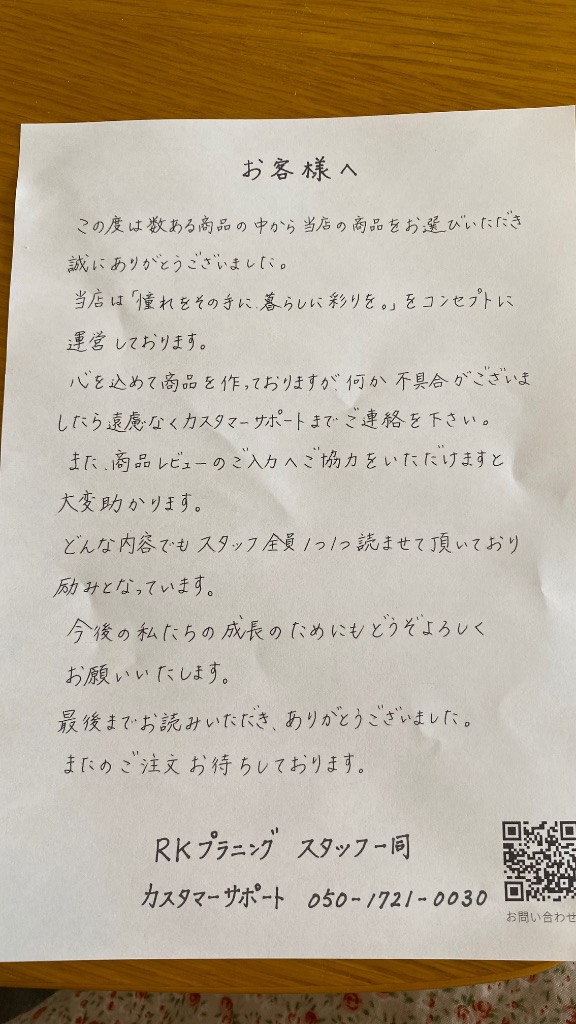 お客様へ
この度は数ある商品の中から当店の商品をお選びいただき
誠にありがとうございました。
当店は「憧れをその手に、暮らしに彩りを。」をコンセプトに
運営しております。
心を込めて商品を作っておりますが、何か不具合がございま
したら遠慮なくカスタマーサポートまでご連絡を下さい。
また、商品レビューのご入力へご協力をいただけますと
大変助かります。
どんな内容でもスタッフ全員1つ1つ読ませて頂いており
励みとなっています。
今後の私たちの成長のためにもどうぞよろしく
お願いいたします。
最後までお読みいただき、ありがとうございました。
またのご注文お待ちしております。
RKプラニング スタッフ一同
カスタマーサポート 050-1721-0030
お問い合わせ